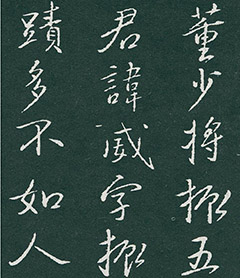 董少將振五
君諱威字振
蹟多不如人